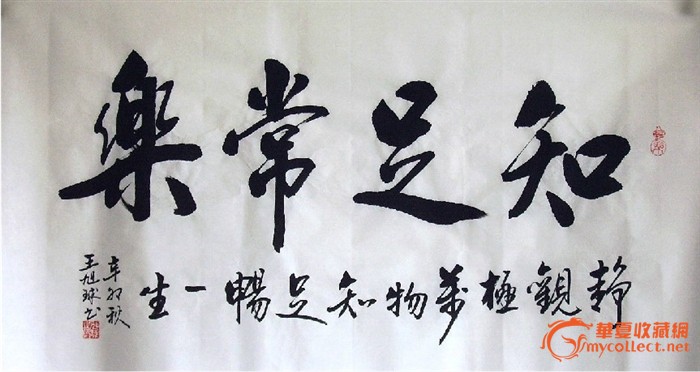 知足常樂
静觀極萬物知足暢一生
辛卯秋
王旭球书
華夏收藏網
mycollect.net